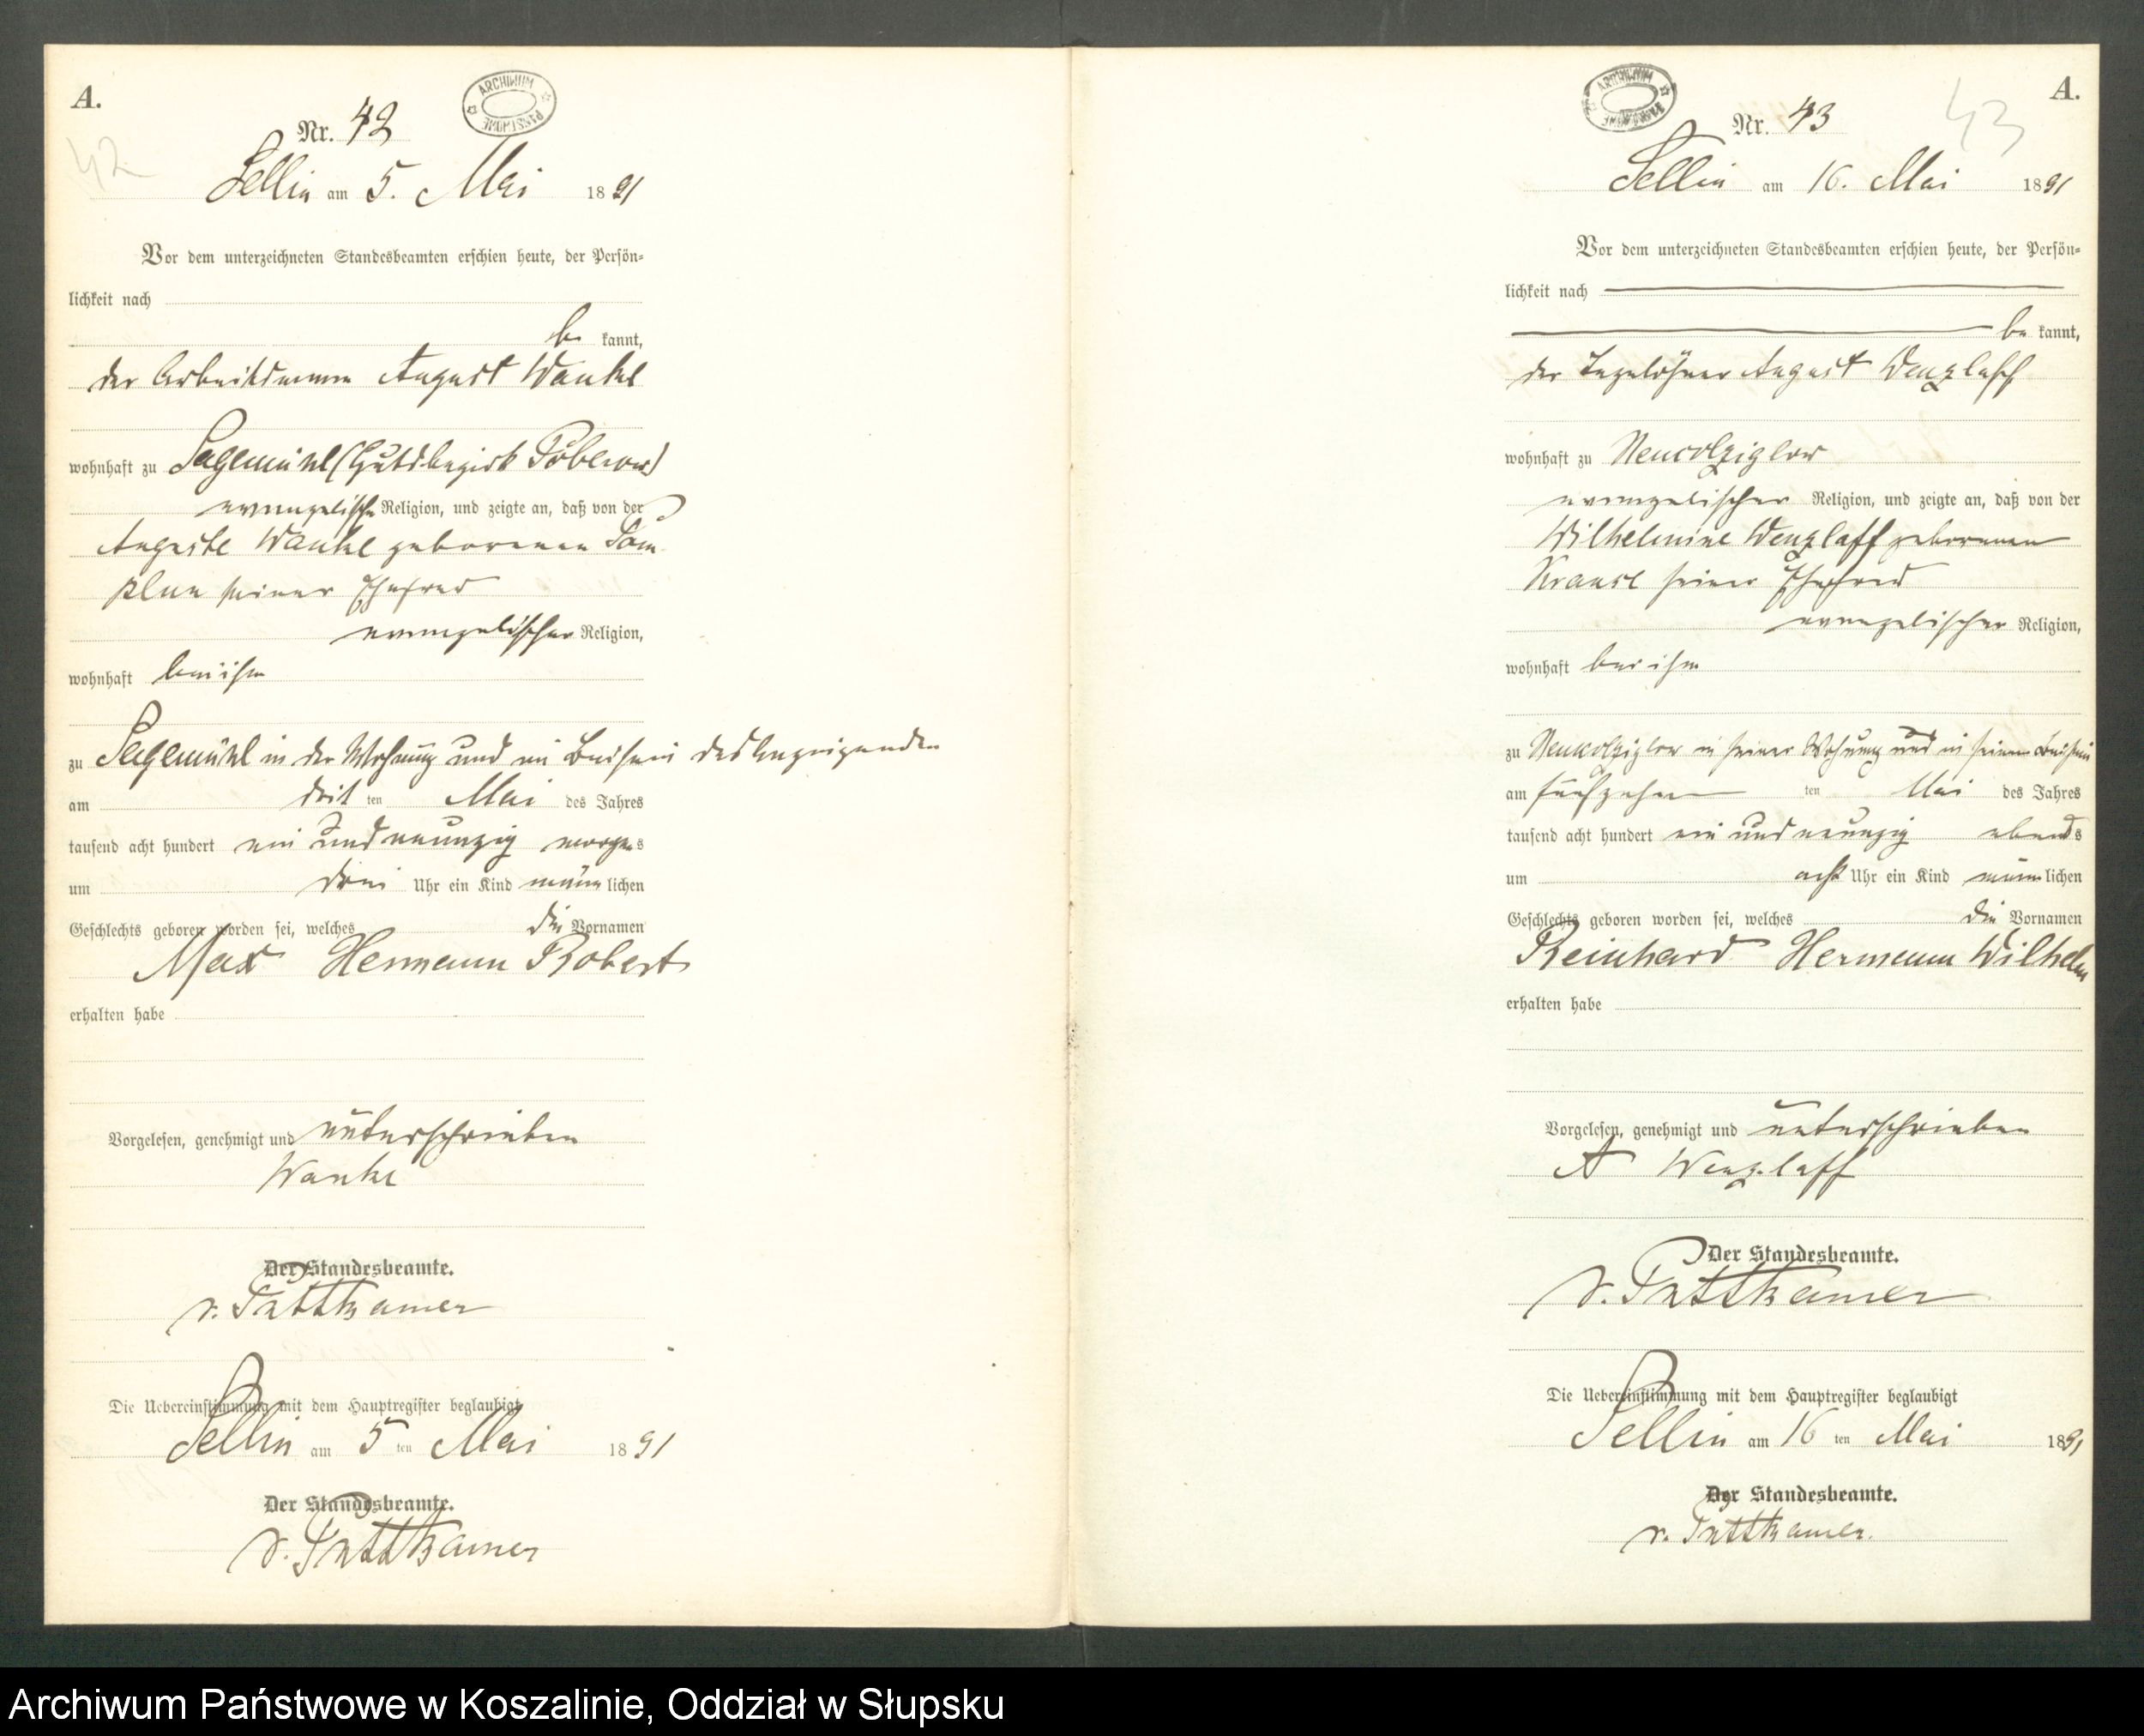 A.
ARCHIWUM PAŃSTWOWE
Nr. 42
42
Sellin am 5. Mai 1891
Vor dem unterzeichneten Standesbeamten erschien heute, der Persön-
lichkeit nach
be kannt,
der Arbeitsmann August Wanke
wohnhaft zu Sagemühl (Gutsbezirk Poberow)
evangelischer Religion, und zeigte an, daß von der
Auguste Wanke geborenen Pom
plun seiner Ehefrau
evangelischer Religion,
wohnhaft bei ihm
zu Sagemühl in der Wohnung und im Beisein des Anzeigenden
am dritten Mai des Jahres
tausend acht hundert ein und neunzig morgens
um drei Uhr ein Kind männlichen
Geschlechts geboren worden sei, welches die Vornamen
Max Hermann Robert
erhalten habe
Vorgelesen, genehmigt und unterschrieben
Wanke
Der Standesbeamte.
v. Puttkamer
Die Uebereinstimmung mit dem Hauptregister beglaubigt
Sellin am 5 ten Mai 1891
Der Standesbeamte.
v. Puttkamer
A.
ARCHIWUM PAŃSTWOWE
Nr. 43
43
Sellin am 16. Mai 1891
Vor dem unterzeichneten Standesbeamten erschien heute, der Persön-
lichkeit nach
be kannt,
der Tagelöhner August Wenzlaff
wohnhaft zu Neucolziglow
evangelischer Religion, und zeigte an, daß von der
Wilhelmine Wenzlaff geborenen
Krause seiner Ehefrau
evangelischer Religion,
wohnhaft bei ihm
zu Neucolziglow in seiner Wohnung und in seinem Beisein
am fünfzehn ten Mai des Jahres
tausend acht hundert ein und neunzig abends
um acht Uhr ein Kind männlichen
Geschlechts geboren worden sei, welches die Vornamen
Reinhard Hermann Wilhelm
erhalten habe
Vorgelesen, genehmigt und unterschrieben
A Wenzlaff
Der Standesbeamte.
v. Puttkamer
Die Uebereinstimmung mit dem Hauptregister beglaubigt
Sellin am 16 ten Mai 1891
Der Standesbeamte.
v. Puttkamer.
Archiwum Państwowe w Koszalinie, Oddział w Słupsku